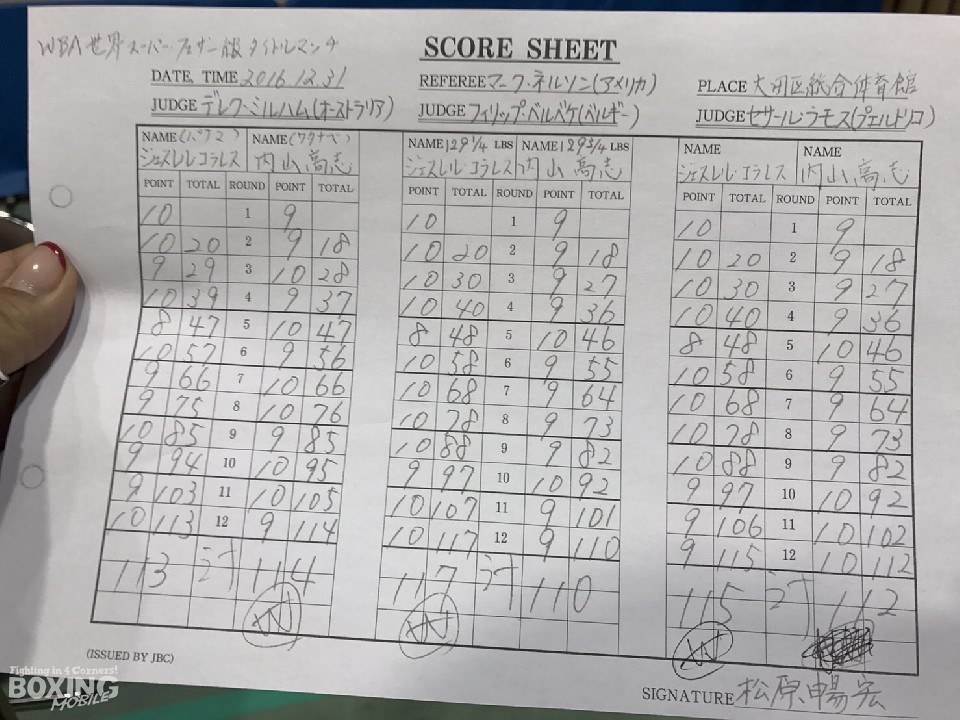 WBA世界スーパーフェザー級タイトルマッチ
SCORE SHEET
DATE, TIME 2016.12.31 REFEREE マーク・ネルソン(アメリカ) PLACE 大田区総合体育館
JUDGE デレク・ミルハム(オーストラリア) JUDGE フィリップ・ベルベケ(ベルギー) JUDGE セサール・ラモス(プエルトリコ)
NAME (パナマ) NAME (ワタナベ) NAME 129 1/4 LBS NAME 129 3/4 LBS NAME NAME
ジェスレル・コラレス 内山高志 ジェスレル・コラレス 内山高志 ジェスレル・コラレス 内山高志
POINT TOTAL ROUND POINT TOTAL POINT TOTAL ROUND POINT TOTAL POINT TOTAL ROUND POINT TOTAL
10 1 9 10 1 9 10 1 9
10 20 2 9 18 10 20 2 9 18 10 20 2 9 18
9 29 3 10 28 10 30 3 9 27 10 30 3 9 27
10 39 4 9 37 10 40 4 9 36 10 40 4 9 36
8 47 5 10 47 8 48 5 10 46 8 48 5 10 46
10 57 6 9 56 10 58 6 9 55 10 58 6 9 55
9 66 7 10 66 10 68 7 9 64 10 68 7 9 64
9 75 8 10 76 10 78 8 9 73 10 78 8 9 73
10 85 9 9 85 10 88 9 9 82 10 88 9 9 82
9 94 10 10 95 9 97 10 10 92 9 97 10 10 92
9 103 11 10 105 10 107 11 9 101 9 106 11 10 102
10 113 12 9 114 10 117 12 9 110 9 115 12 10 112
113 計 114 117 計 110 115 計 112
W W W
(ISSUED BY JBC)
SIGNATURE 松原暢宏
Fighting in 4 Corners!
BOXING
MOBILE